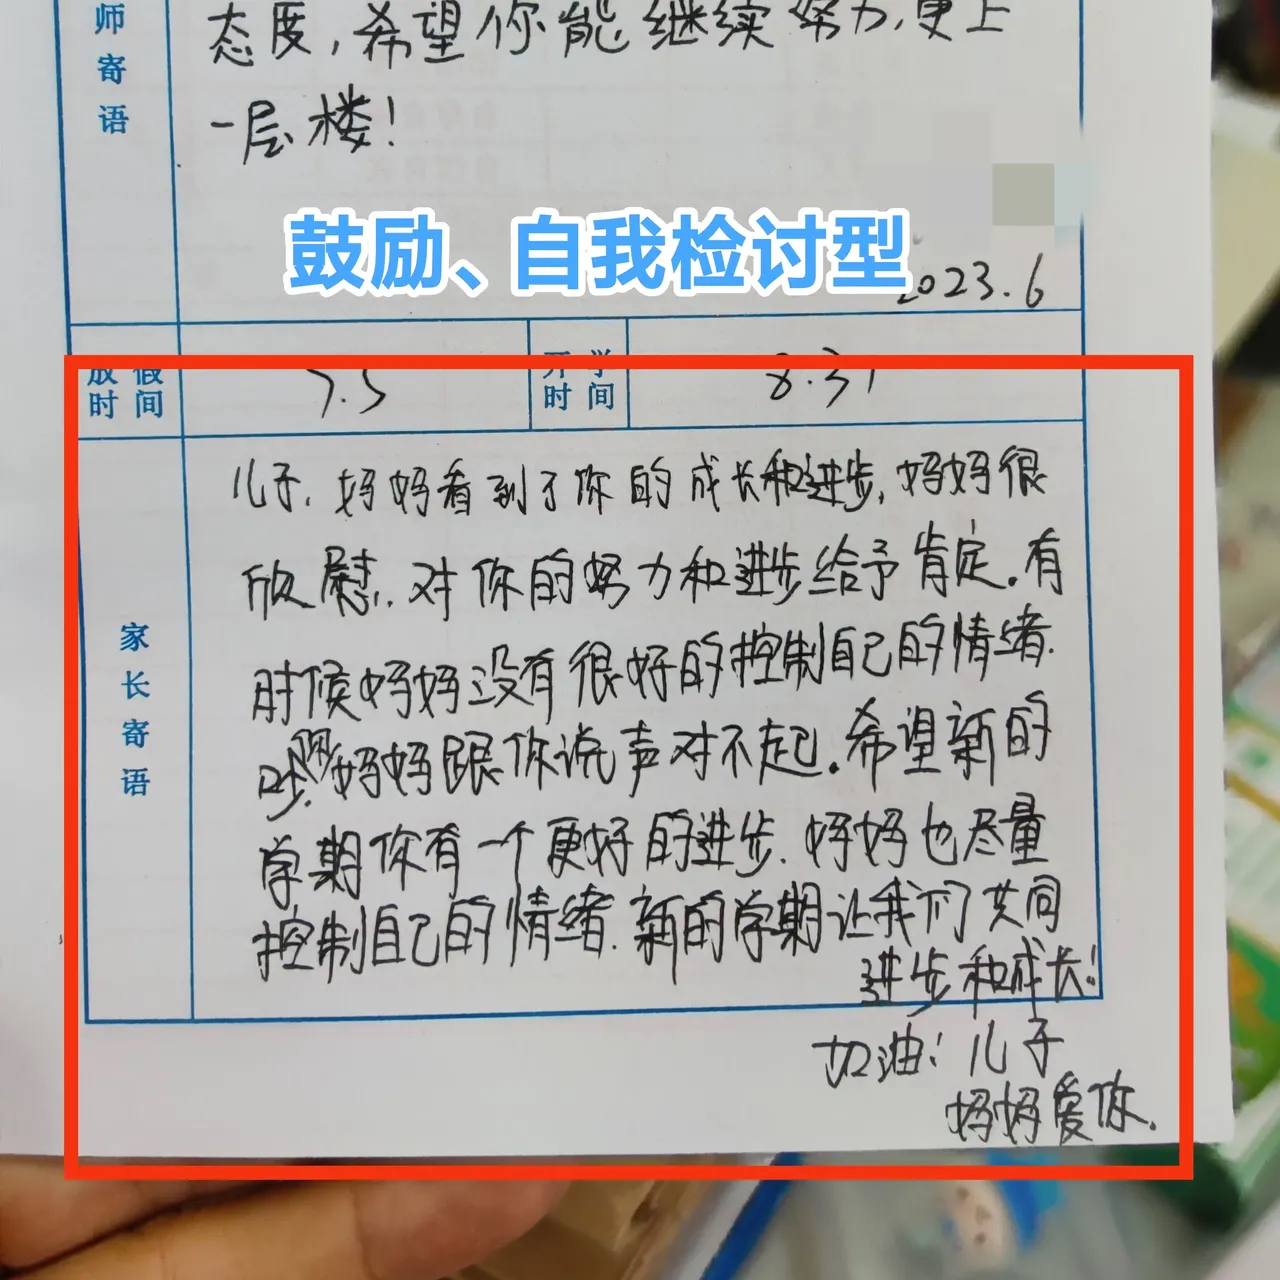 师寄语
态度,希望你能继续努力,更上
一层楼!
鼓励、自我检讨型
2023.6
放假时间
7.5
开学时间
8.31
家长寄语
儿子,妈妈看到了你的成长和进步,妈妈很
欣慰,对你的努力和进步给予肯定。有
时候妈妈没有很好的控制自己的情绪.
吵 妈妈跟你说声对不起。希望新的
学期你有一个更好的进步.妈妈也尽量
控制自己的情绪.新的学期让我们共同
进步和成长!
加油!儿子
妈妈爱你.